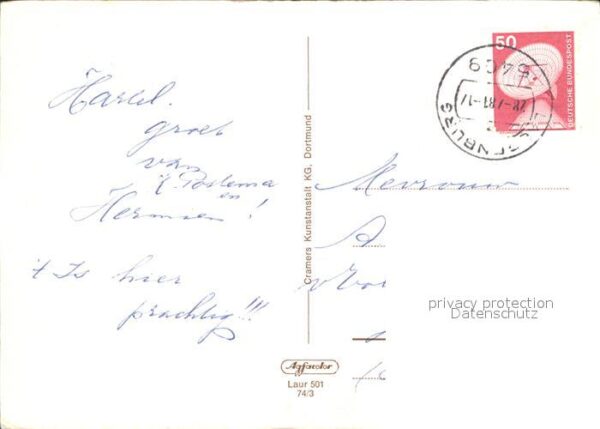 Hartel.
groet
van
Postema
en
Hermsen!
't Is hier
prachtig!!!
Cramers Kunstanstalt KG, Dortmund
Agfacolor
Laur 501
74/3
50
DEUTSCHE BUNDESPOST
5408
28.-7.81-17
ENBURG
Mevrouw
A
privacy protection
Datenschutz